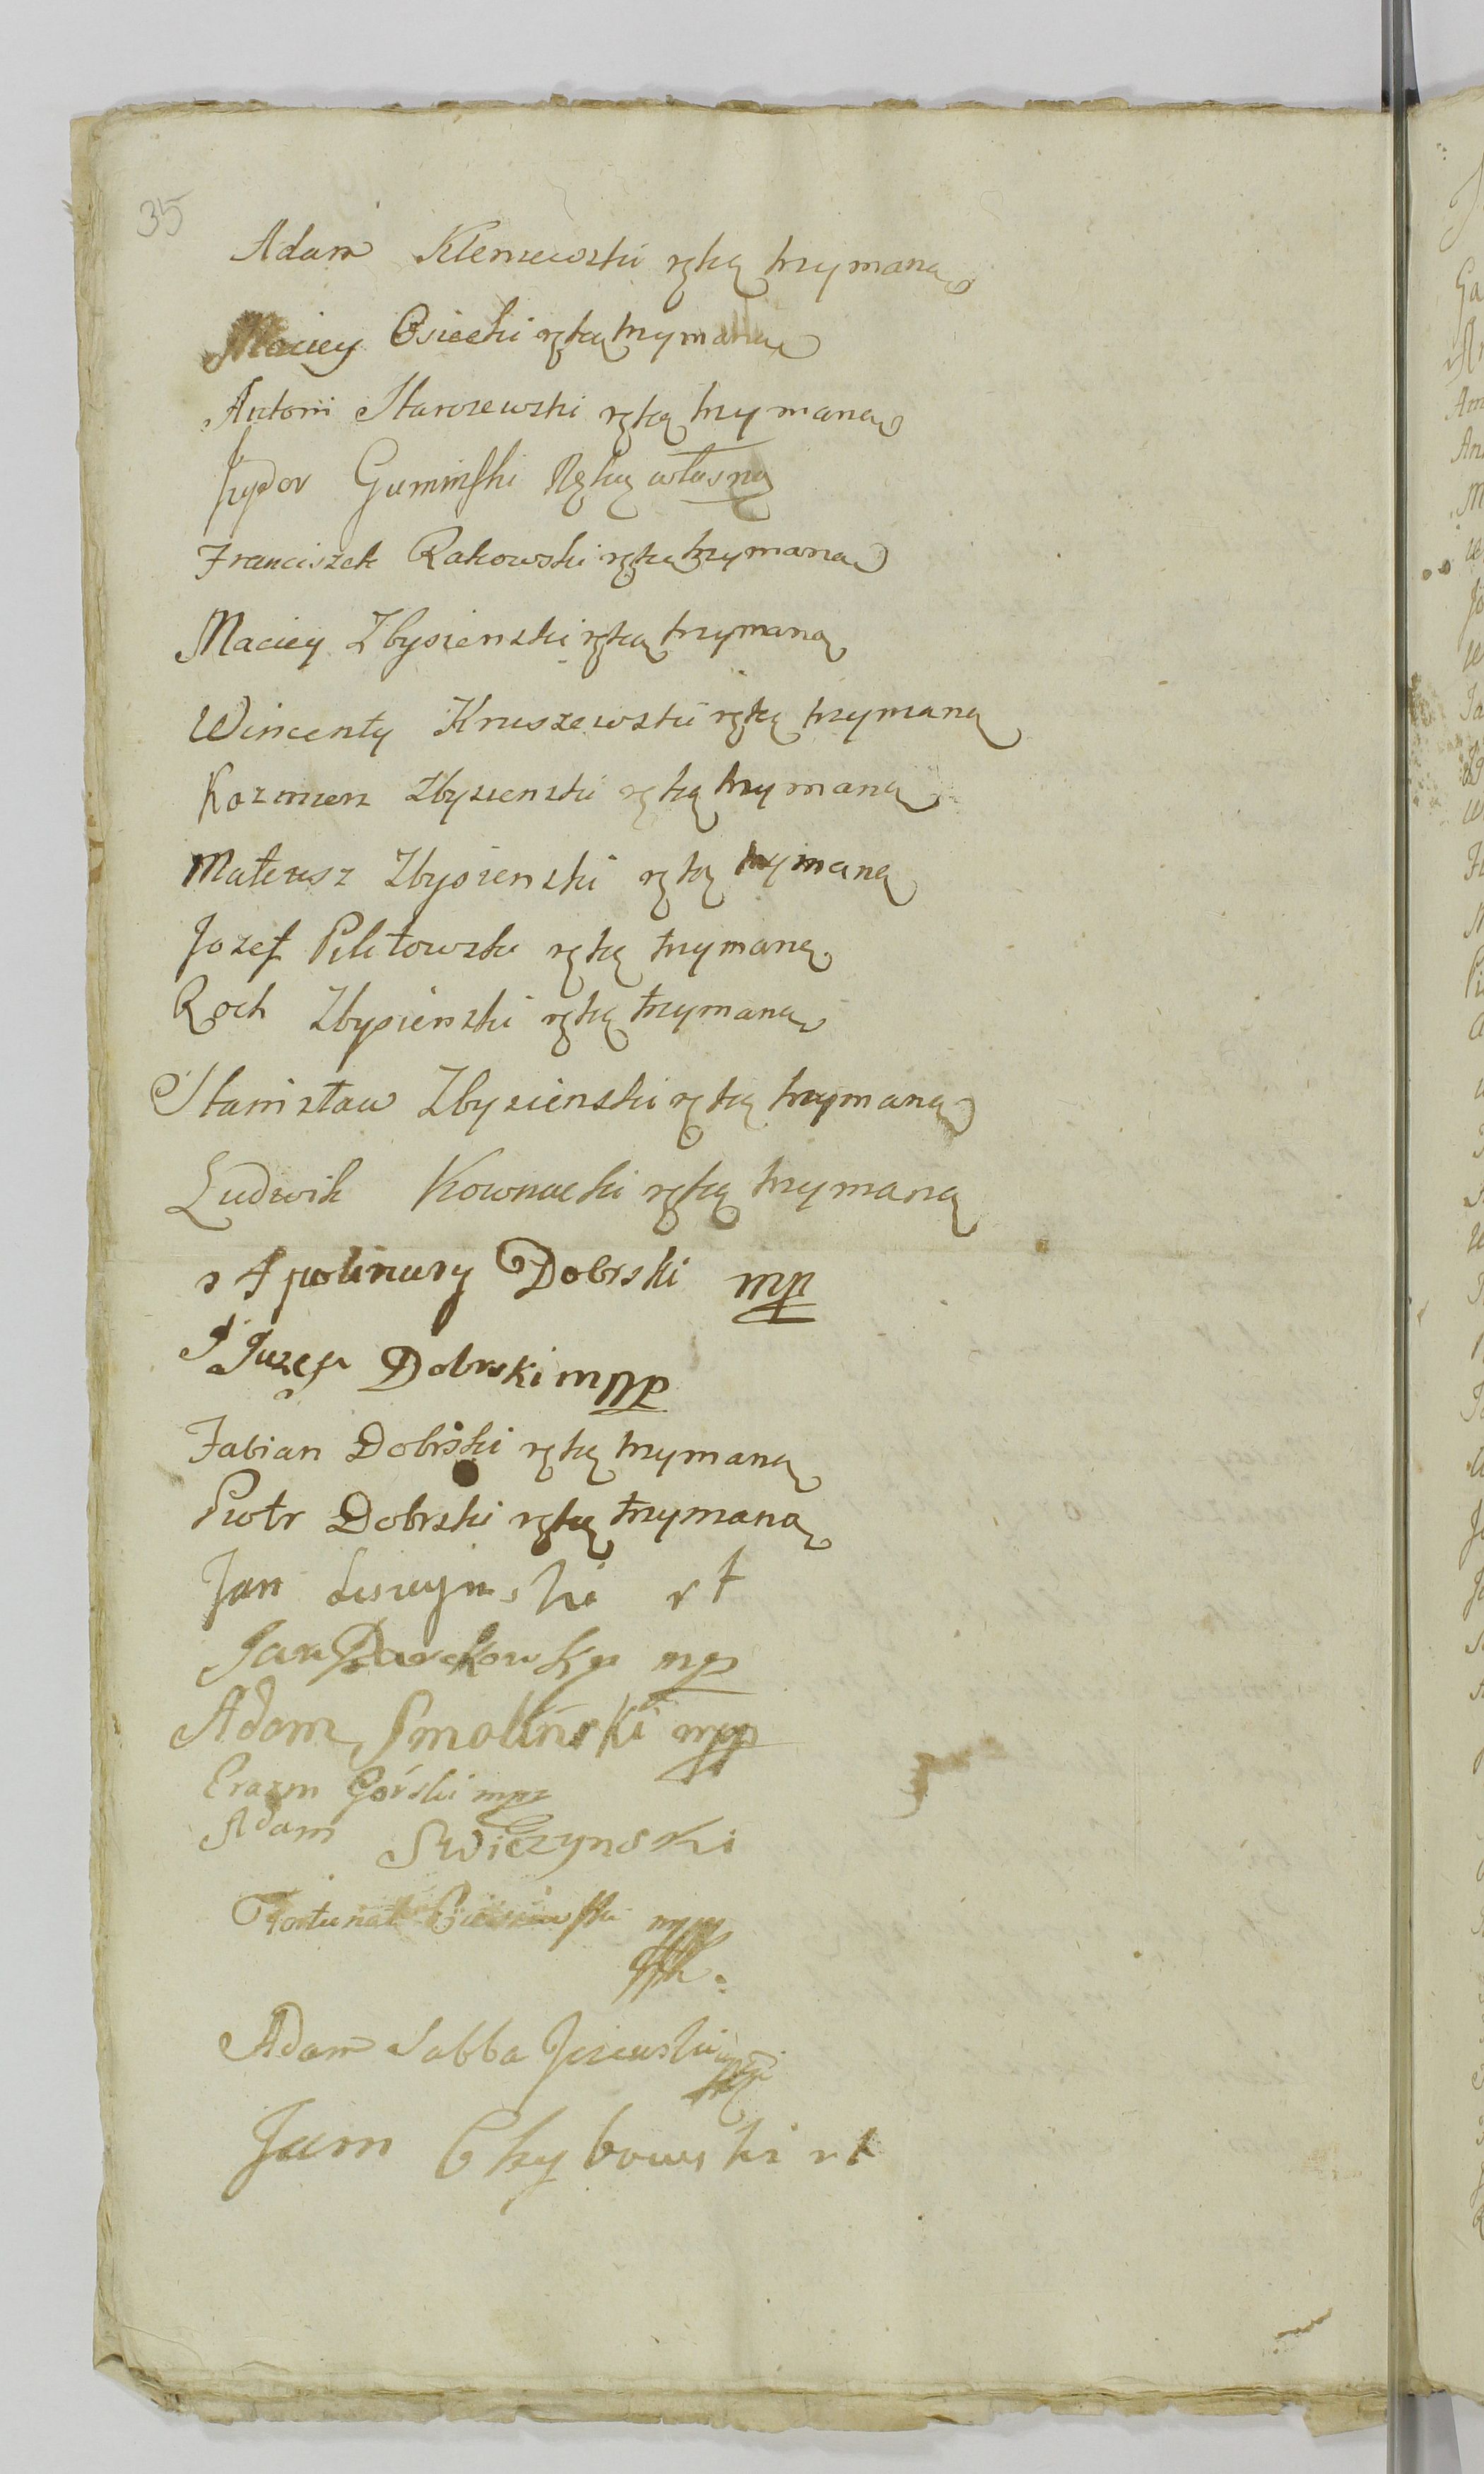 35
Adam Kleniewski ręką trzymaną
Maciey Osiecki ręką trzymaną
Antoni Staroszewski ręką trzymaną
Jzydor Gumiński Ręką własną
Franciszek Rakowski ręką trzymaną
Maciey Zbysienski ręką trzymaną
Wincenty Kruszewski ręką trzymaną
Kazmierz Zbysienski ręką trzymaną
Mateusz Zbysienski ręką trzymaną
Jozef Pilitowski ręką trzymaną
Roch Zbysienski ręką trzymaną
Stanisław Zbysienski ręką trzymaną
Ludwik Kownacki ręką trzymaną
Apolinary Dobrski mp
Juzef Dobrski mpp
Fabian Dobrski ręką trzymaną
Piotr Dobrski ręką trzymaną
Jan rt
Jan mp
Adam Smolinski mpp
Erazm Górski mpp
Adam Swięzynski
Fortunat mpp
Adam Sabba
Jan Chybowski rt